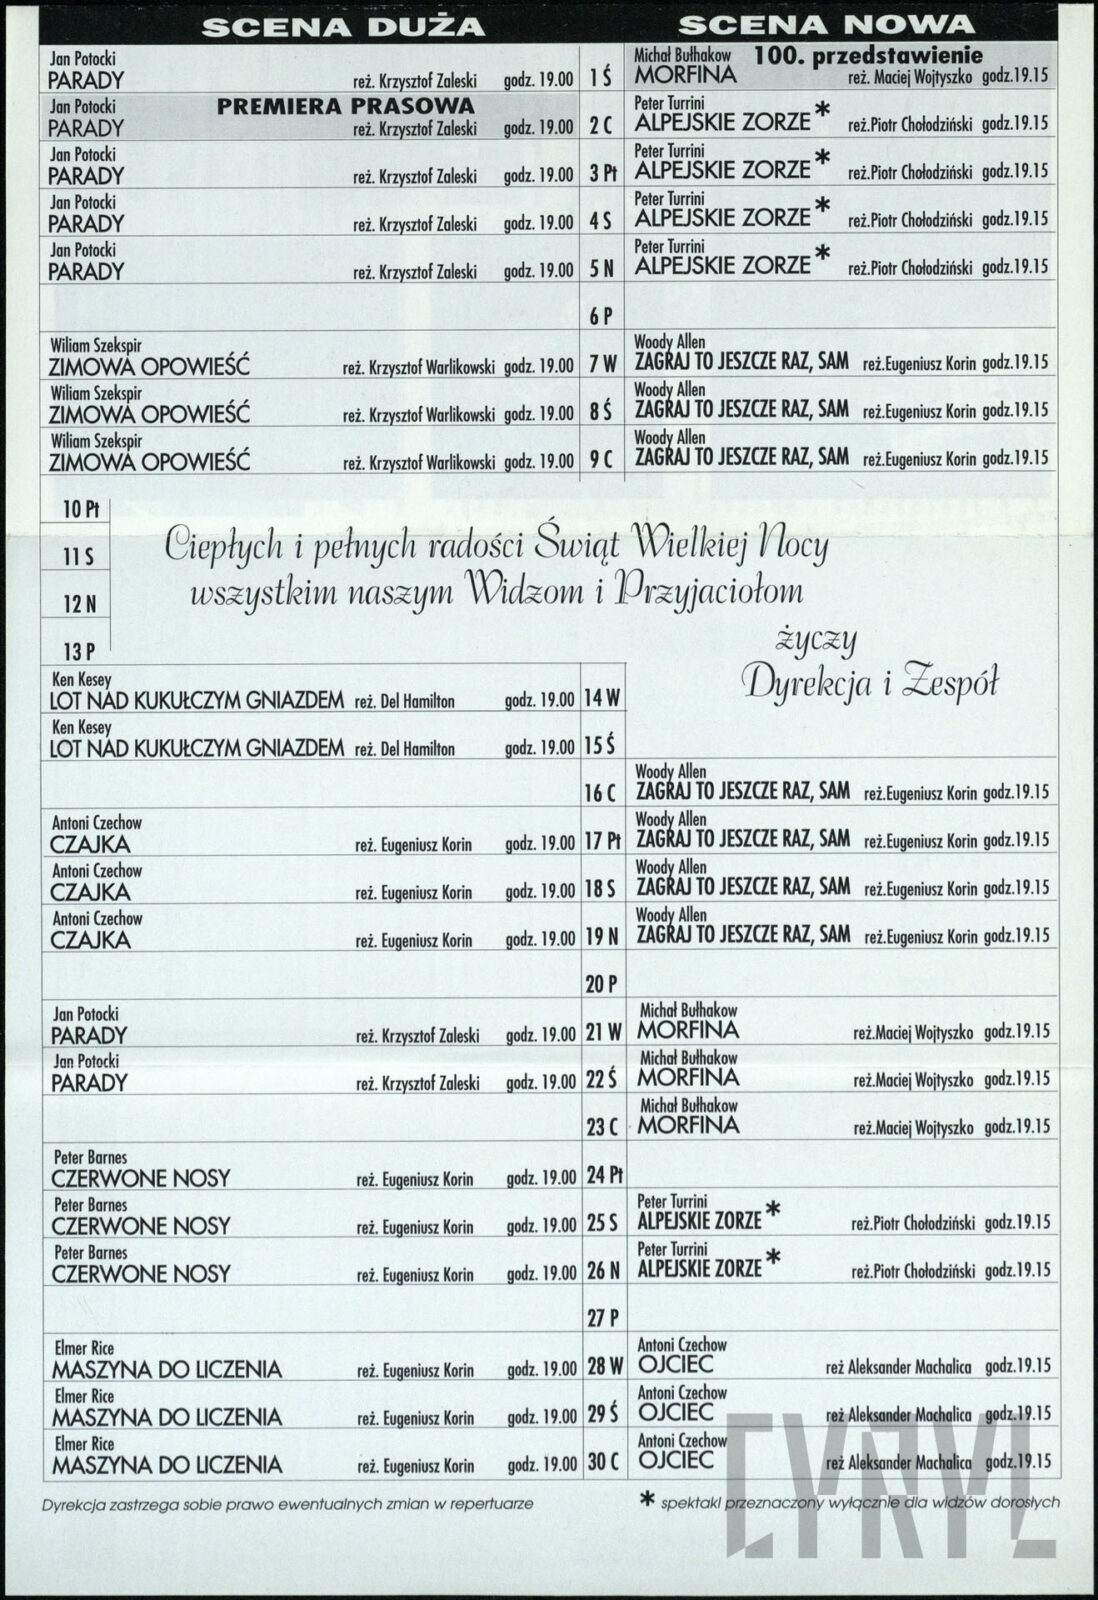 SCENA DUŻA SCENA NOWA
Jan Potocki Michał Bułhakow 100. przedstawienie
PARADY reż. Krzysztof Zaleski godz. 19.00 1 Ś MORFINA reż. Maciej Wojtyszko godz.19.15
Jan Potocki PREMIERA PRASOWA Peter Turrini
PARADY reż. Krzysztof Zaleski godz. 19.00 2 C ALPEJSKIE ZORZE * reż.Piotr Chołodziński godz.19.15
Jan Potocki Peter Turrini
PARADY reż. Krzysztof Zaleski godz. 19.00 3 Pt ALPEJSKIE ZORZE * reż.Piotr Chołodziński godz.19.15
Jan Potocki Peter Turrini
PARADY reż. Krzysztof Zaleski godz. 19.00 4 S ALPEJSKIE ZORZE * reż.Piotr Chołodziński godz.19.15
Jan Potocki Peter Turrini
PARADY reż. Krzysztof Zaleski godz. 19.00 5 N ALPEJSKIE ZORZE * reż.Piotr Chołodziński godz.19.15
6 P
Wiliam Szekspir Woody Allen
ZIMOWA OPOWIEŚĆ reż. Krzysztof Warlikowski godz. 19.00 7 W ZAGRAJ TO JESZCZE RAZ, SAM reż.Eugeniusz Korin godz.19.15
Wiliam Szekspir Woody Allen
ZIMOWA OPOWIEŚĆ reż. Krzysztof Warlikowski godz. 19.00 8 Ś ZAGRAJ TO JESZCZE RAZ, SAM reż.Eugeniusz Korin godz.19.15
Wiliam Szekspir Woody Allen
ZIMOWA OPOWIEŚĆ reż. Krzysztof Warlikowski godz. 19.00 9 C ZAGRAJ TO JESZCZE RAZ, SAM reż.Eugeniusz Korin godz.19.15
10 Pt
11 S
12 N
13 P
Ciepłych i pełnych radości Świąt Wielkiej Nocy
wszystkim naszym Widzom i Przyjaciołom
życzy
Dyrekcja i Zespół
Ken Kesey
LOT NAD KUKUŁCZYM GNIAZDEM reż. Del Hamilton godz. 19.00 14 W
Ken Kesey
LOT NAD KUKUŁCZYM GNIAZDEM reż. Del Hamilton godz. 19.00 15 Ś
Woody Allen
16 C ZAGRAJ TO JESZCZE RAZ, SAM reż.Eugeniusz Korin godz.19.15
Antoni Czechow Woody Allen
CZAJKA reż. Eugeniusz Korin godz. 19.00 17 Pt ZAGRAJ TO JESZCZE RAZ, SAM reż.Eugeniusz Korin godz.19.15
Antoni Czechow Woody Allen
CZAJKA reż. Eugeniusz Korin godz. 19.00 18 S ZAGRAJ TO JESZCZE RAZ, SAM reż.Eugeniusz Korin godz.19.15
Antoni Czechow Woody Allen
CZAJKA reż. Eugeniusz Korin godz. 19.00 19 N ZAGRAJ TO JESZCZE RAZ, SAM reż.Eugeniusz Korin godz.19.15
20 P
Jan Potocki Michał Bułhakow
PARADY reż. Krzysztof Zaleski godz. 19.00 21 W MORFINA reż.Maciej Wojtyszko godz.19.15
Jan Potocki Michał Bułhakow
PARADY reż. Krzysztof Zaleski godz. 19.00 22 Ś MORFINA reż.Maciej Wojtyszko godz.19.15
Michał Bułhakow
23 C MORFINA reż.Maciej Wojtyszko godz.19.15
Peter Barnes
CZERWONE NOSY reż. Eugeniusz Korin godz. 19.00 24 Pt
Peter Barnes Peter Turrini
CZERWONE NOSY reż. Eugeniusz Korin godz. 19.00 25 S ALPEJSKIE ZORZE * reż.Piotr Chołodziński godz.19.15
Peter Barnes Peter Turrini
CZERWONE NOSY reż. Eugeniusz Korin godz. 19.00 26 N ALPEJSKIE ZORZE * reż.Piotr Chołodziński godz.19.15
27 P
Elmer Rice Antoni Czechow
MASZYNA DO LICZENIA reż. Eugeniusz Korin godz. 19.00 28 W OJCIEC reż Aleksander Machalica godz.19.15
Elmer Rice Antoni Czechow
MASZYNA DO LICZENIA reż. Eugeniusz Korin godz. 19.00 29 Ś OJCIEC reż Aleksander Machalica godz.19.15
Elmer Rice Antoni Czechow
MASZYNA DO LICZENIA reż. Eugeniusz Korin godz. 19.00 30 C OJCIEC reż Aleksander Machalica godz.19.15
Dyrekcja zastrzega sobie prawo ewentualnych zmian w repertuarze * spektakl przeznaczony wyłącznie dla widzów dorosłych
CYRYL